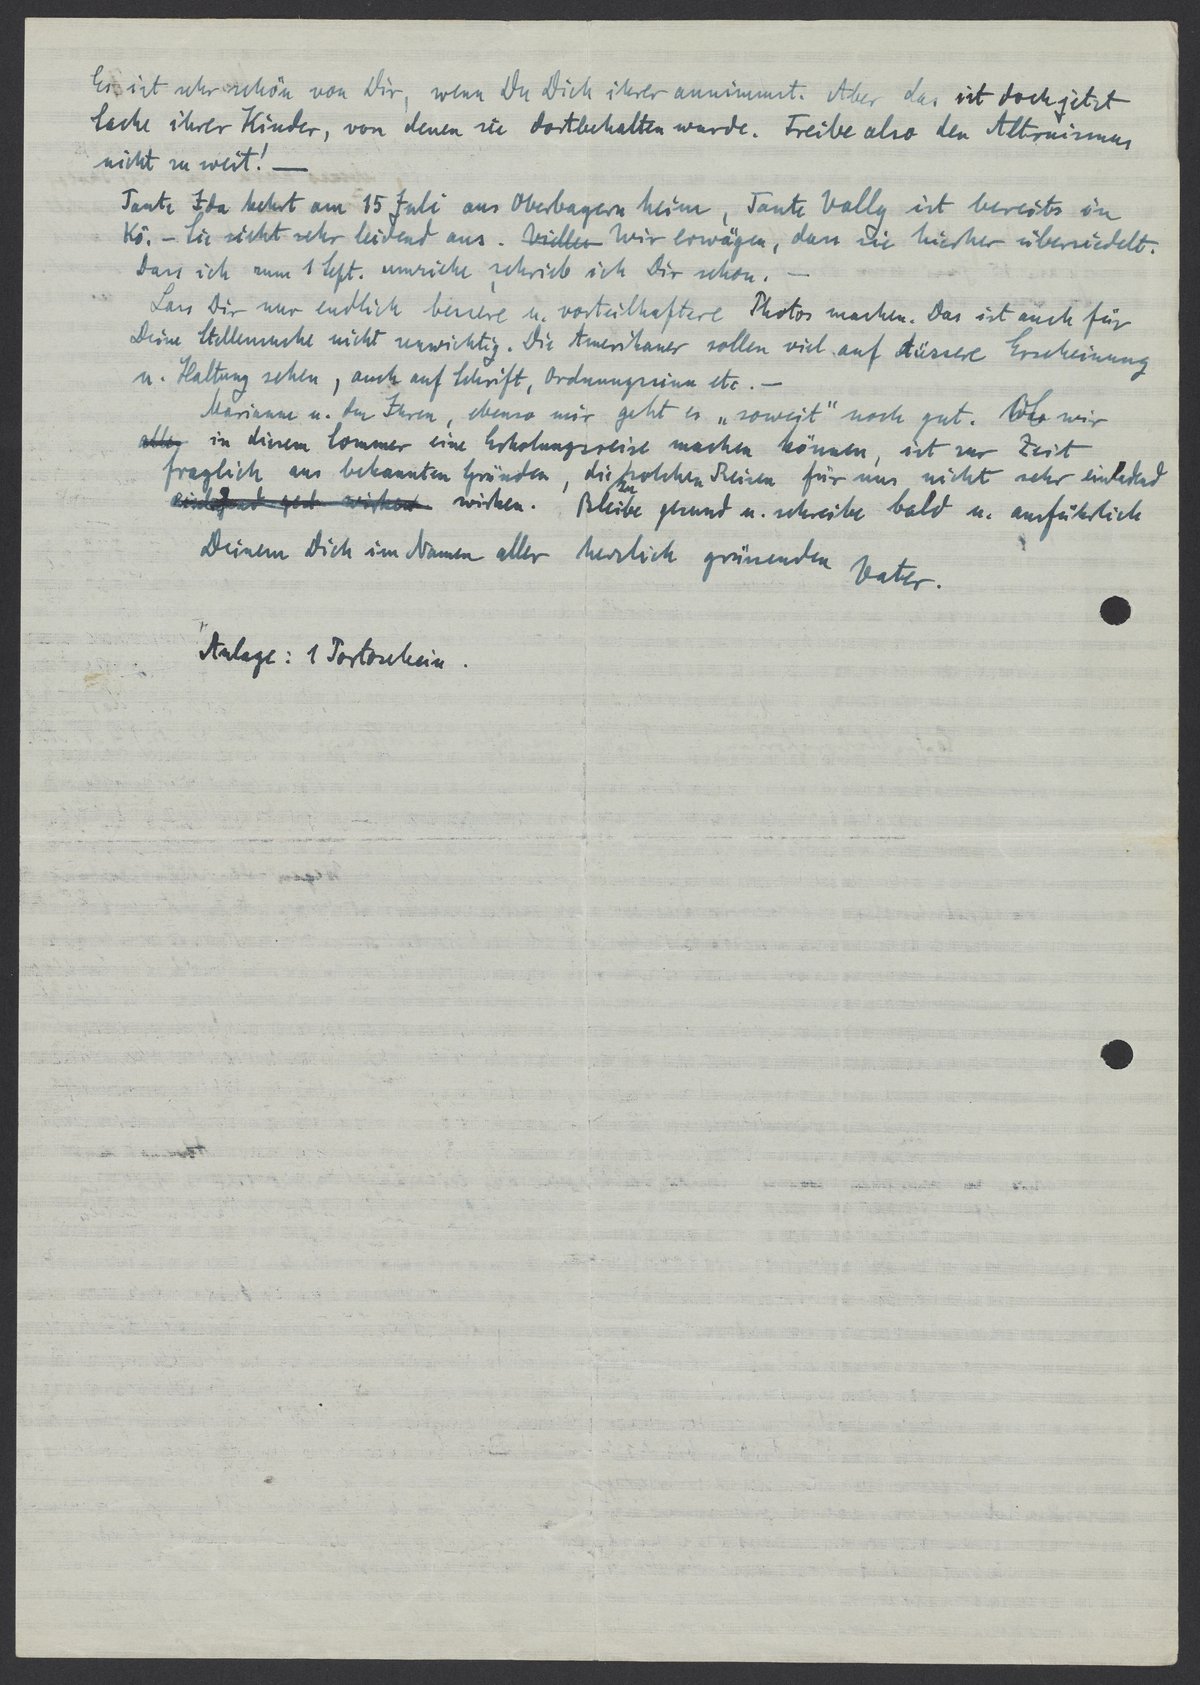 Es ist sehr schön von Dir, wenn Du Dich ihrer annimmst. Aber das ist doch jetzt
Sache ihrer Kinder, von denen sie dortbehalten wurde. Treibe also den Altruismus
nicht zu weit! —
Tante Ida kehrt am 15 Juli aus Oberbayern heim, Tante Vally ist bereits in
Kö. – Sie sieht sehr leidend aus. Wir erwägen, dass sie hierher übersiedelt.
Dass ich zum 1 Sept. umziehe, schrieb ich Dir schon. —
Lass Dir nur endlich bessere u. vorteilhaftere Photos machen. Das ist auch für
Deine Stellensuche nicht unwichtig. Die Amerikaner sollen viel auf äussere Erscheinung
u. Haltung sehen, auch auf Schrift, Ordnungssinn etc. —
Marianne u. den Ihren, ebenso mir geht es „soweit" noch gut. Ob wir
alle in diesem Sommer eine Erholungsreise machen können, ist zur Zeit
fraglich aus bekannten Gründen, die zu solchen Reisen für uns nicht sehr einladend
einladend wirken wirken. Bleibe gesund u. schreibe bald u. ausführlich
Deinem Dich im Namen aller herzlich grüssenden Vater.
Anlage: 1 Portoschein.